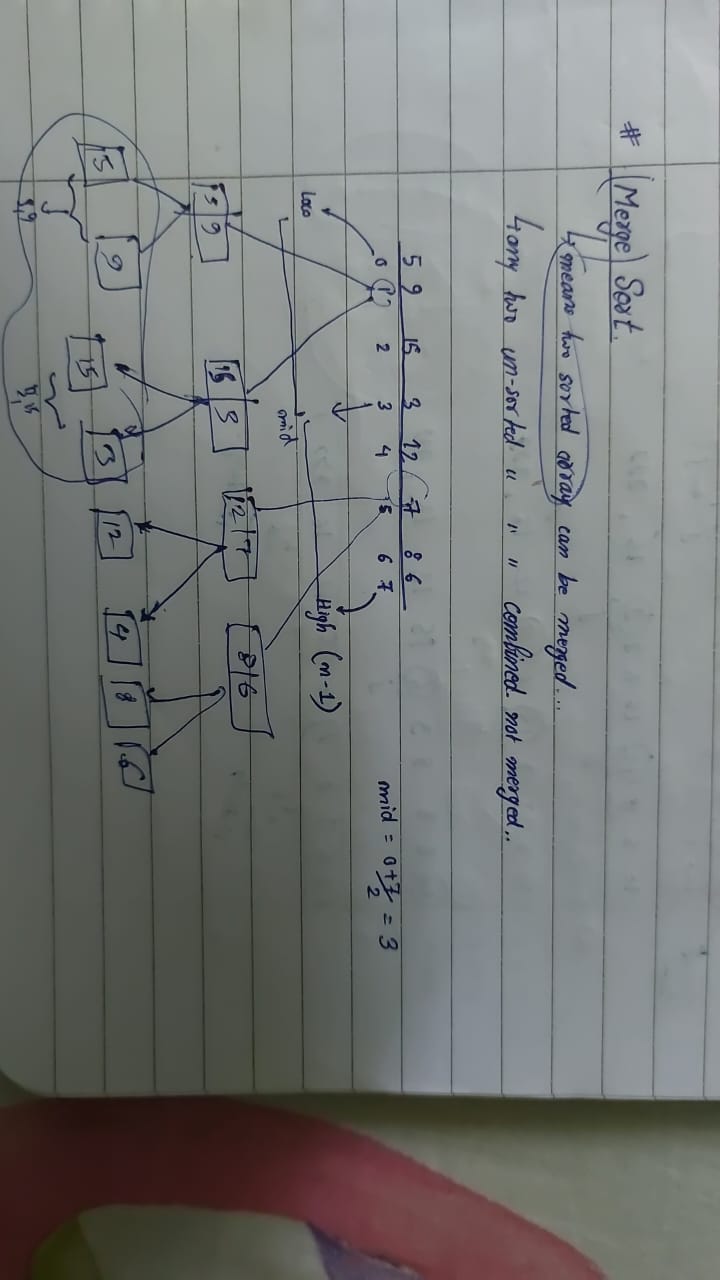 # (Merge) Sort.
↳ means two sorted array can be merged...
↳ any two un-sorted " " " combined not merged..
5 9 15 3 12 7 8 6
0 1 2 3 4 5 6 7
mid = 0+7/2 = 3
Low
High (n-1)
mid
5 9 15 3 12 7 8 6
5 9 15 3 12 4 8 6
5,9